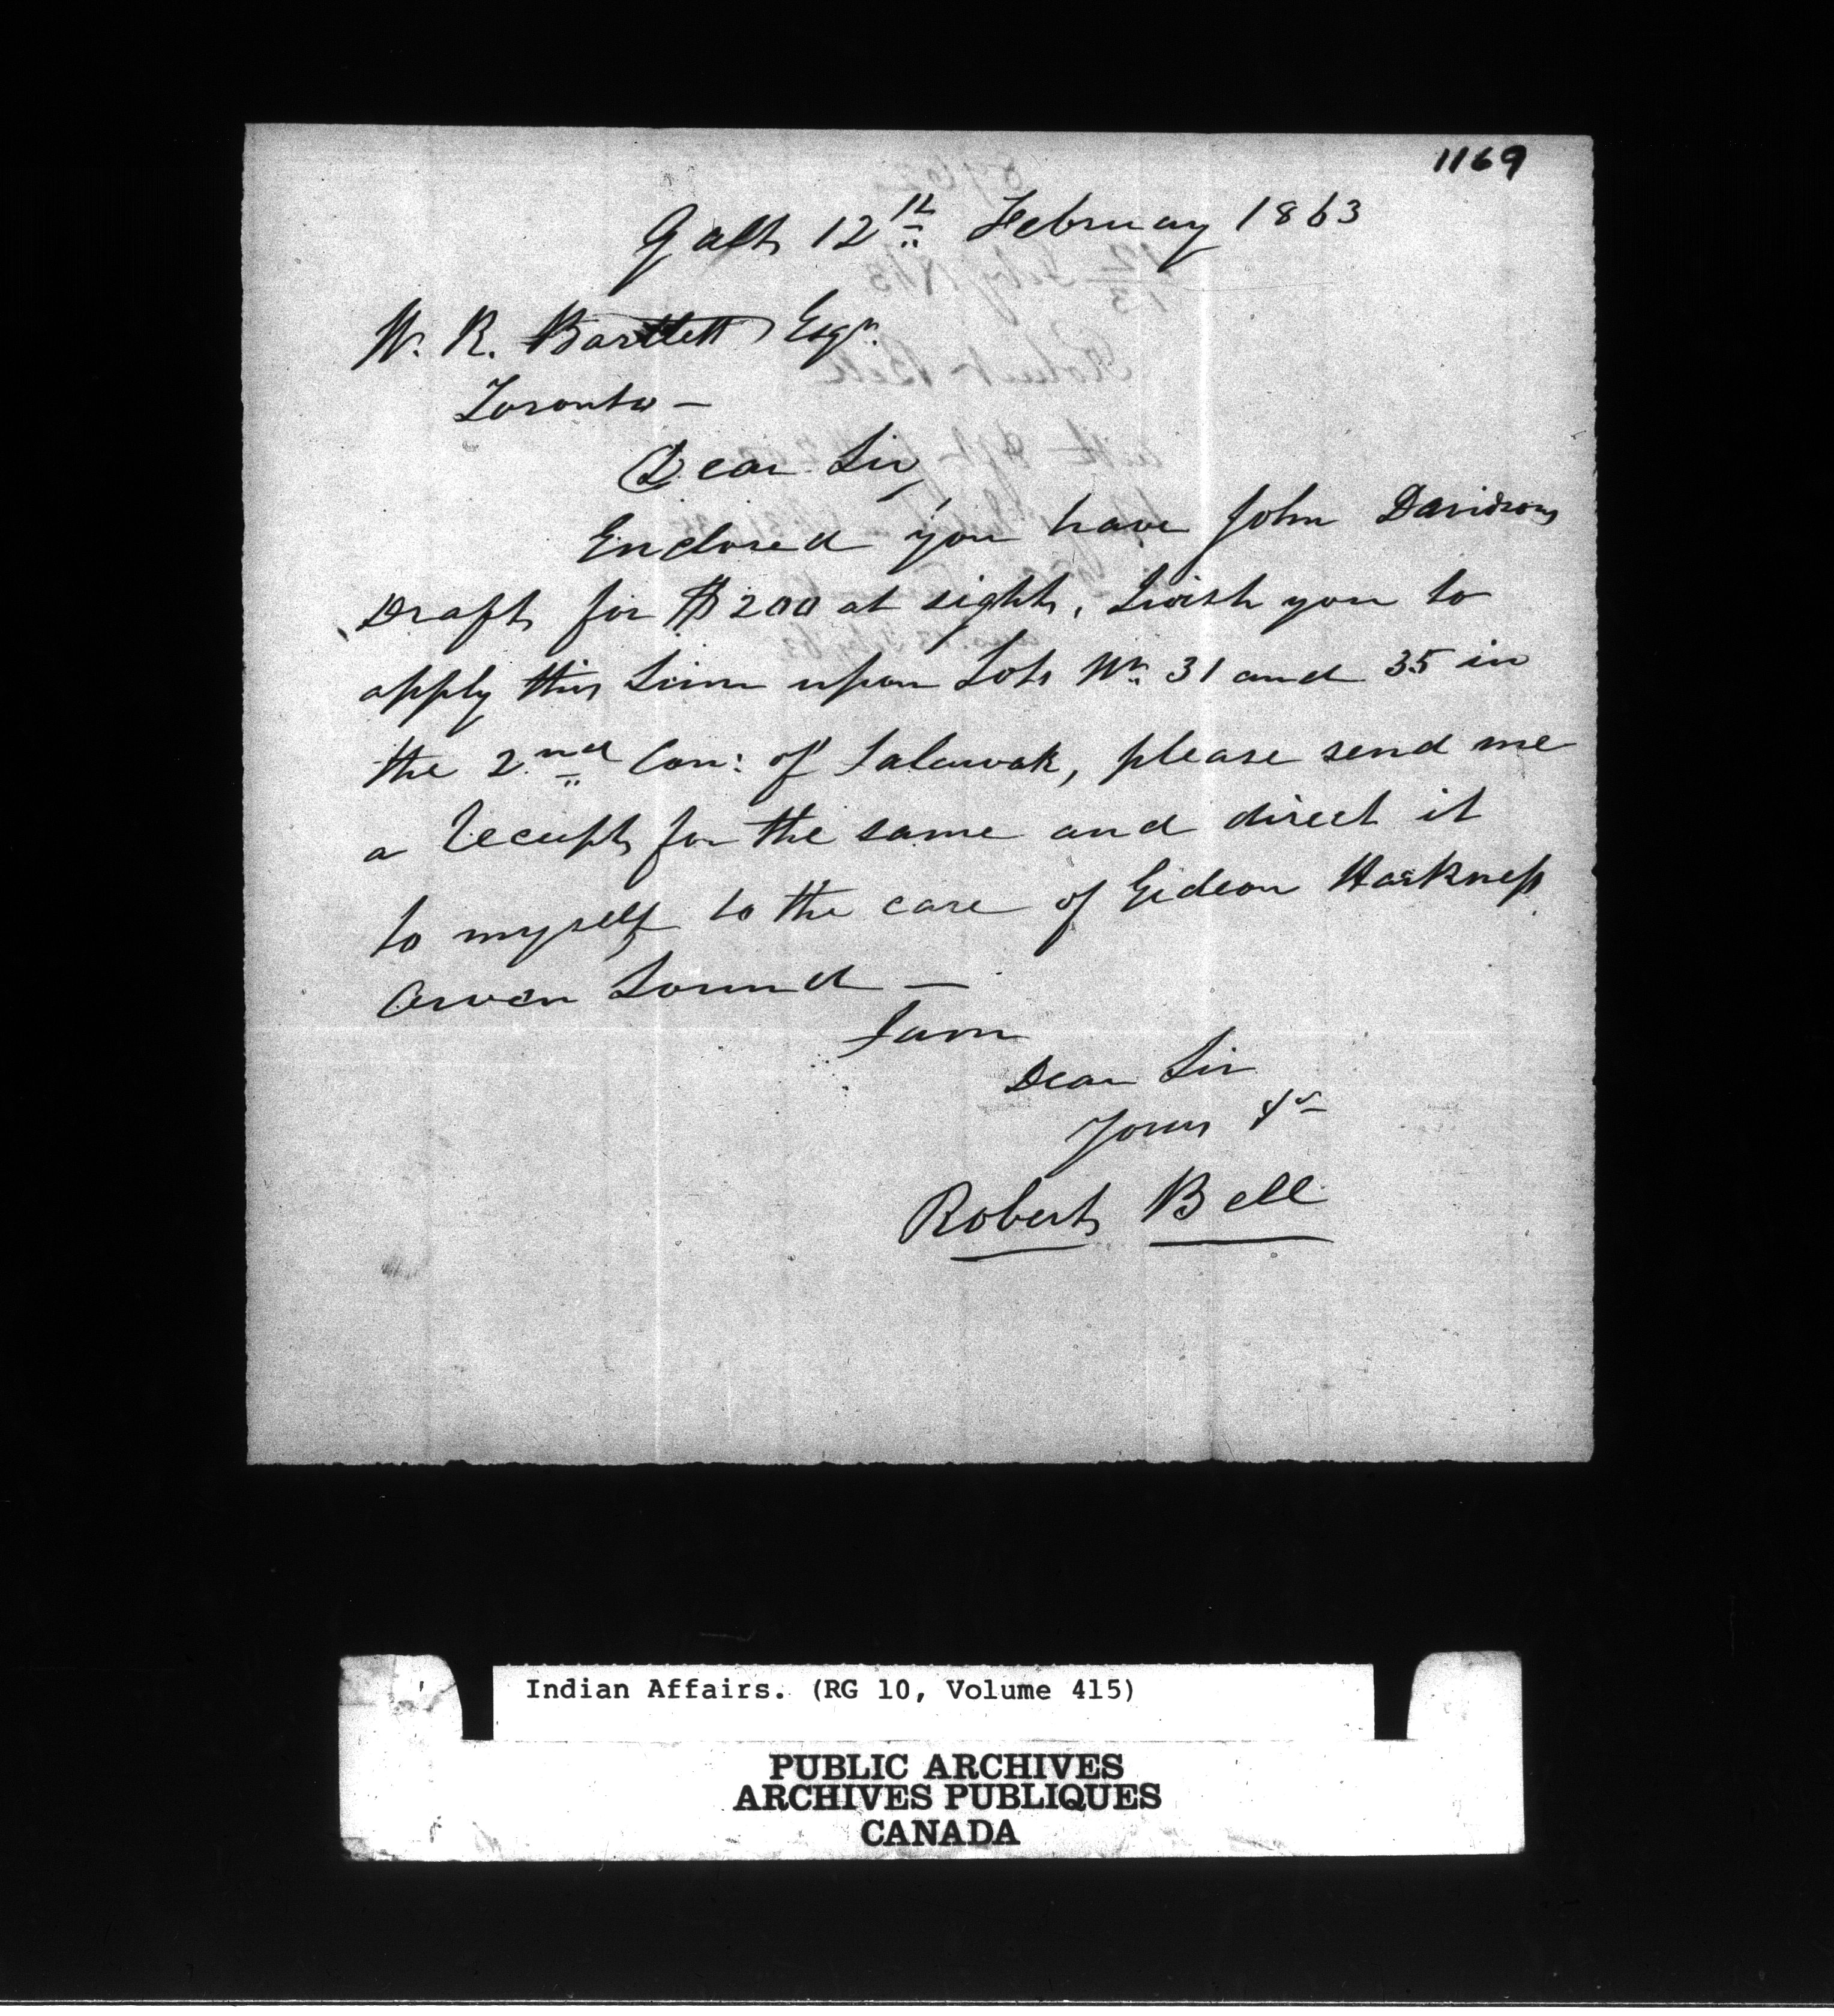 1169
Galt 12th February 1863
W. R. Bartlett Esqr.
Toronto —
Dear Sir,
Enclosed you have John Davidsons
Draft for $200 at sight, I wish you to
apply this Sum upon Lots No. 31 and 35 in
the 2nd Con: of Sarawak, please send me
a Receipt for the same and direct it
to myself to the care of Gideon Harkness
Owen Sound —
I am
Dear Sir
Yours &c
Robert Bell
Indian Affairs. (RG 10, Volume 415)
PUBLIC ARCHIVES
ARCHIVES PUBLIQUES
CANADA